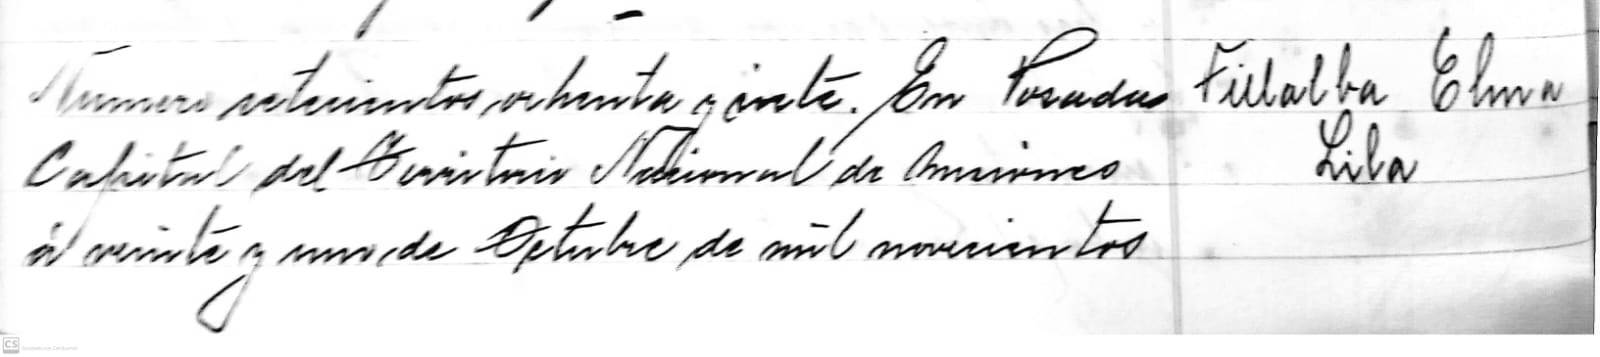 Numero setecientos ochenta y siete. En Posadas
Capital del Territorio Nacional de Misiones
á veinte y uno de Octubre de mil novecientos
Villalba Elma
Lila
CS